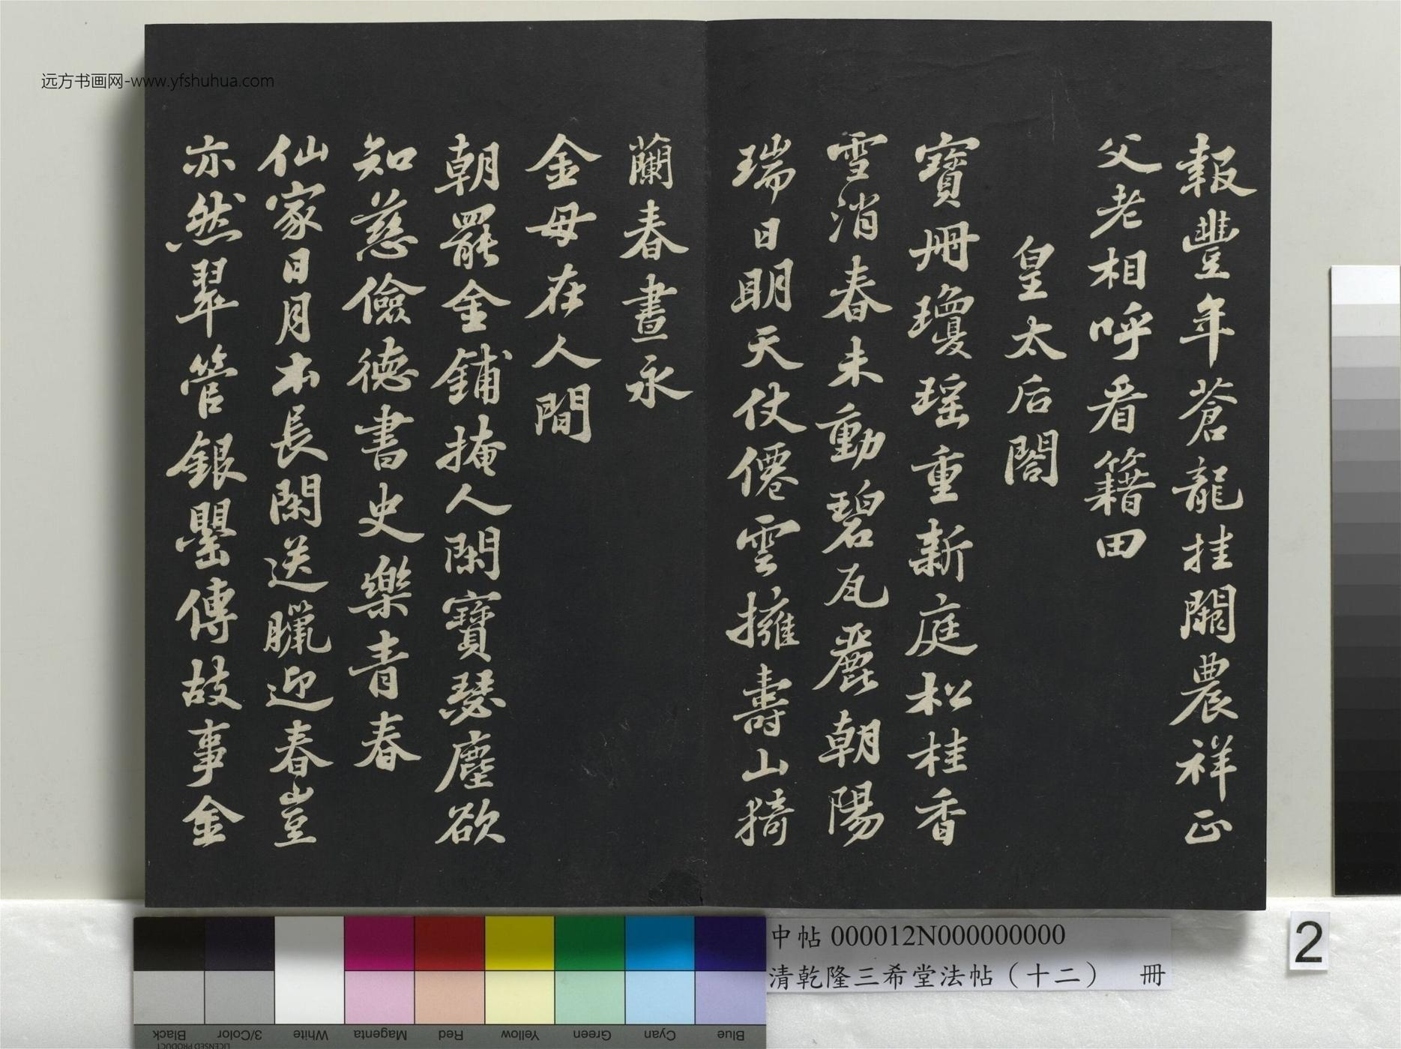 报豐年蒼龍挂闕農祥正
父老相呼看籍田
皇太后閤
寶冊瓊瑤重新庭松桂香
雪消春未動碧瓦麗朝陽
瑞日明天仗僊雲擁壽山猗
蘭春晝永
金母在人間
朝罷金鋪掩人閑寶瑟塵欲
知慈儉德書史樂青春
仙家日月本長閑送臘迎春豈
亦然翠管銀罌傳故事金
远方书画网-www.yfshuhua.com
中帖 000012N000000000
清乾隆三希堂法帖（十二） 冊
2
Blue
Cyan
Green
Yellow
Red
Magenta
White
3/Color
Black
LICENSED PRODUCT